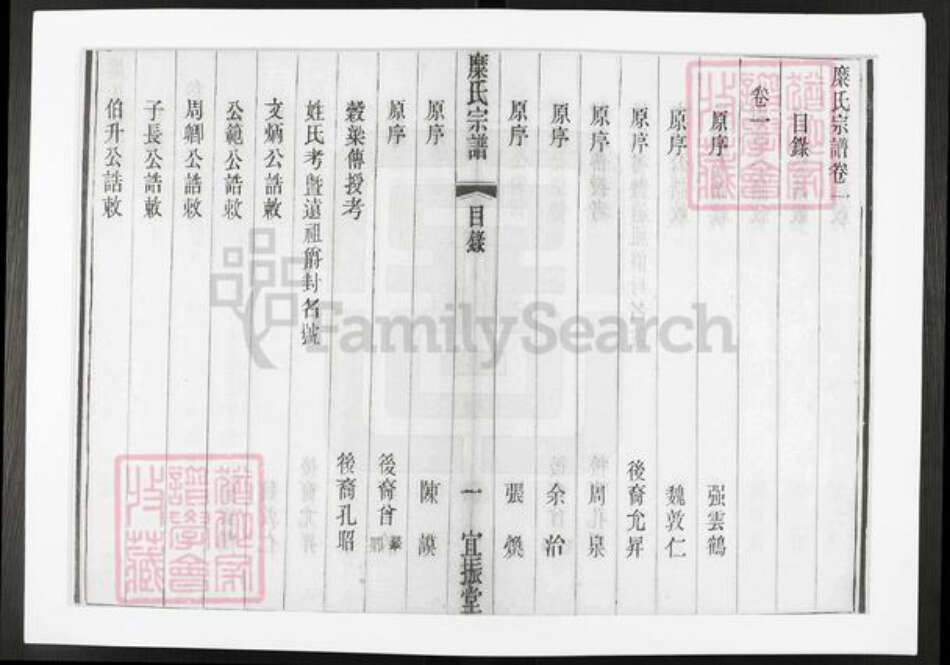 糜氏宗譜卷一
目錄
卷一
原序 强雲鶴
原序 魏敦仁
原序 後裔允昇
原序 周泉
原序 余治
原序 張
糜氏宗譜 目錄 一 宜振堂
原序 陳謨
原序 後裔曾
穀梁傳授考 後裔孔昭
姓氏考暨遠祖爵封名號
文炳公誥敕
公範公誥敕
周卿公誥敕
子長公誥敕
伯升公誥敕
FamilySearch